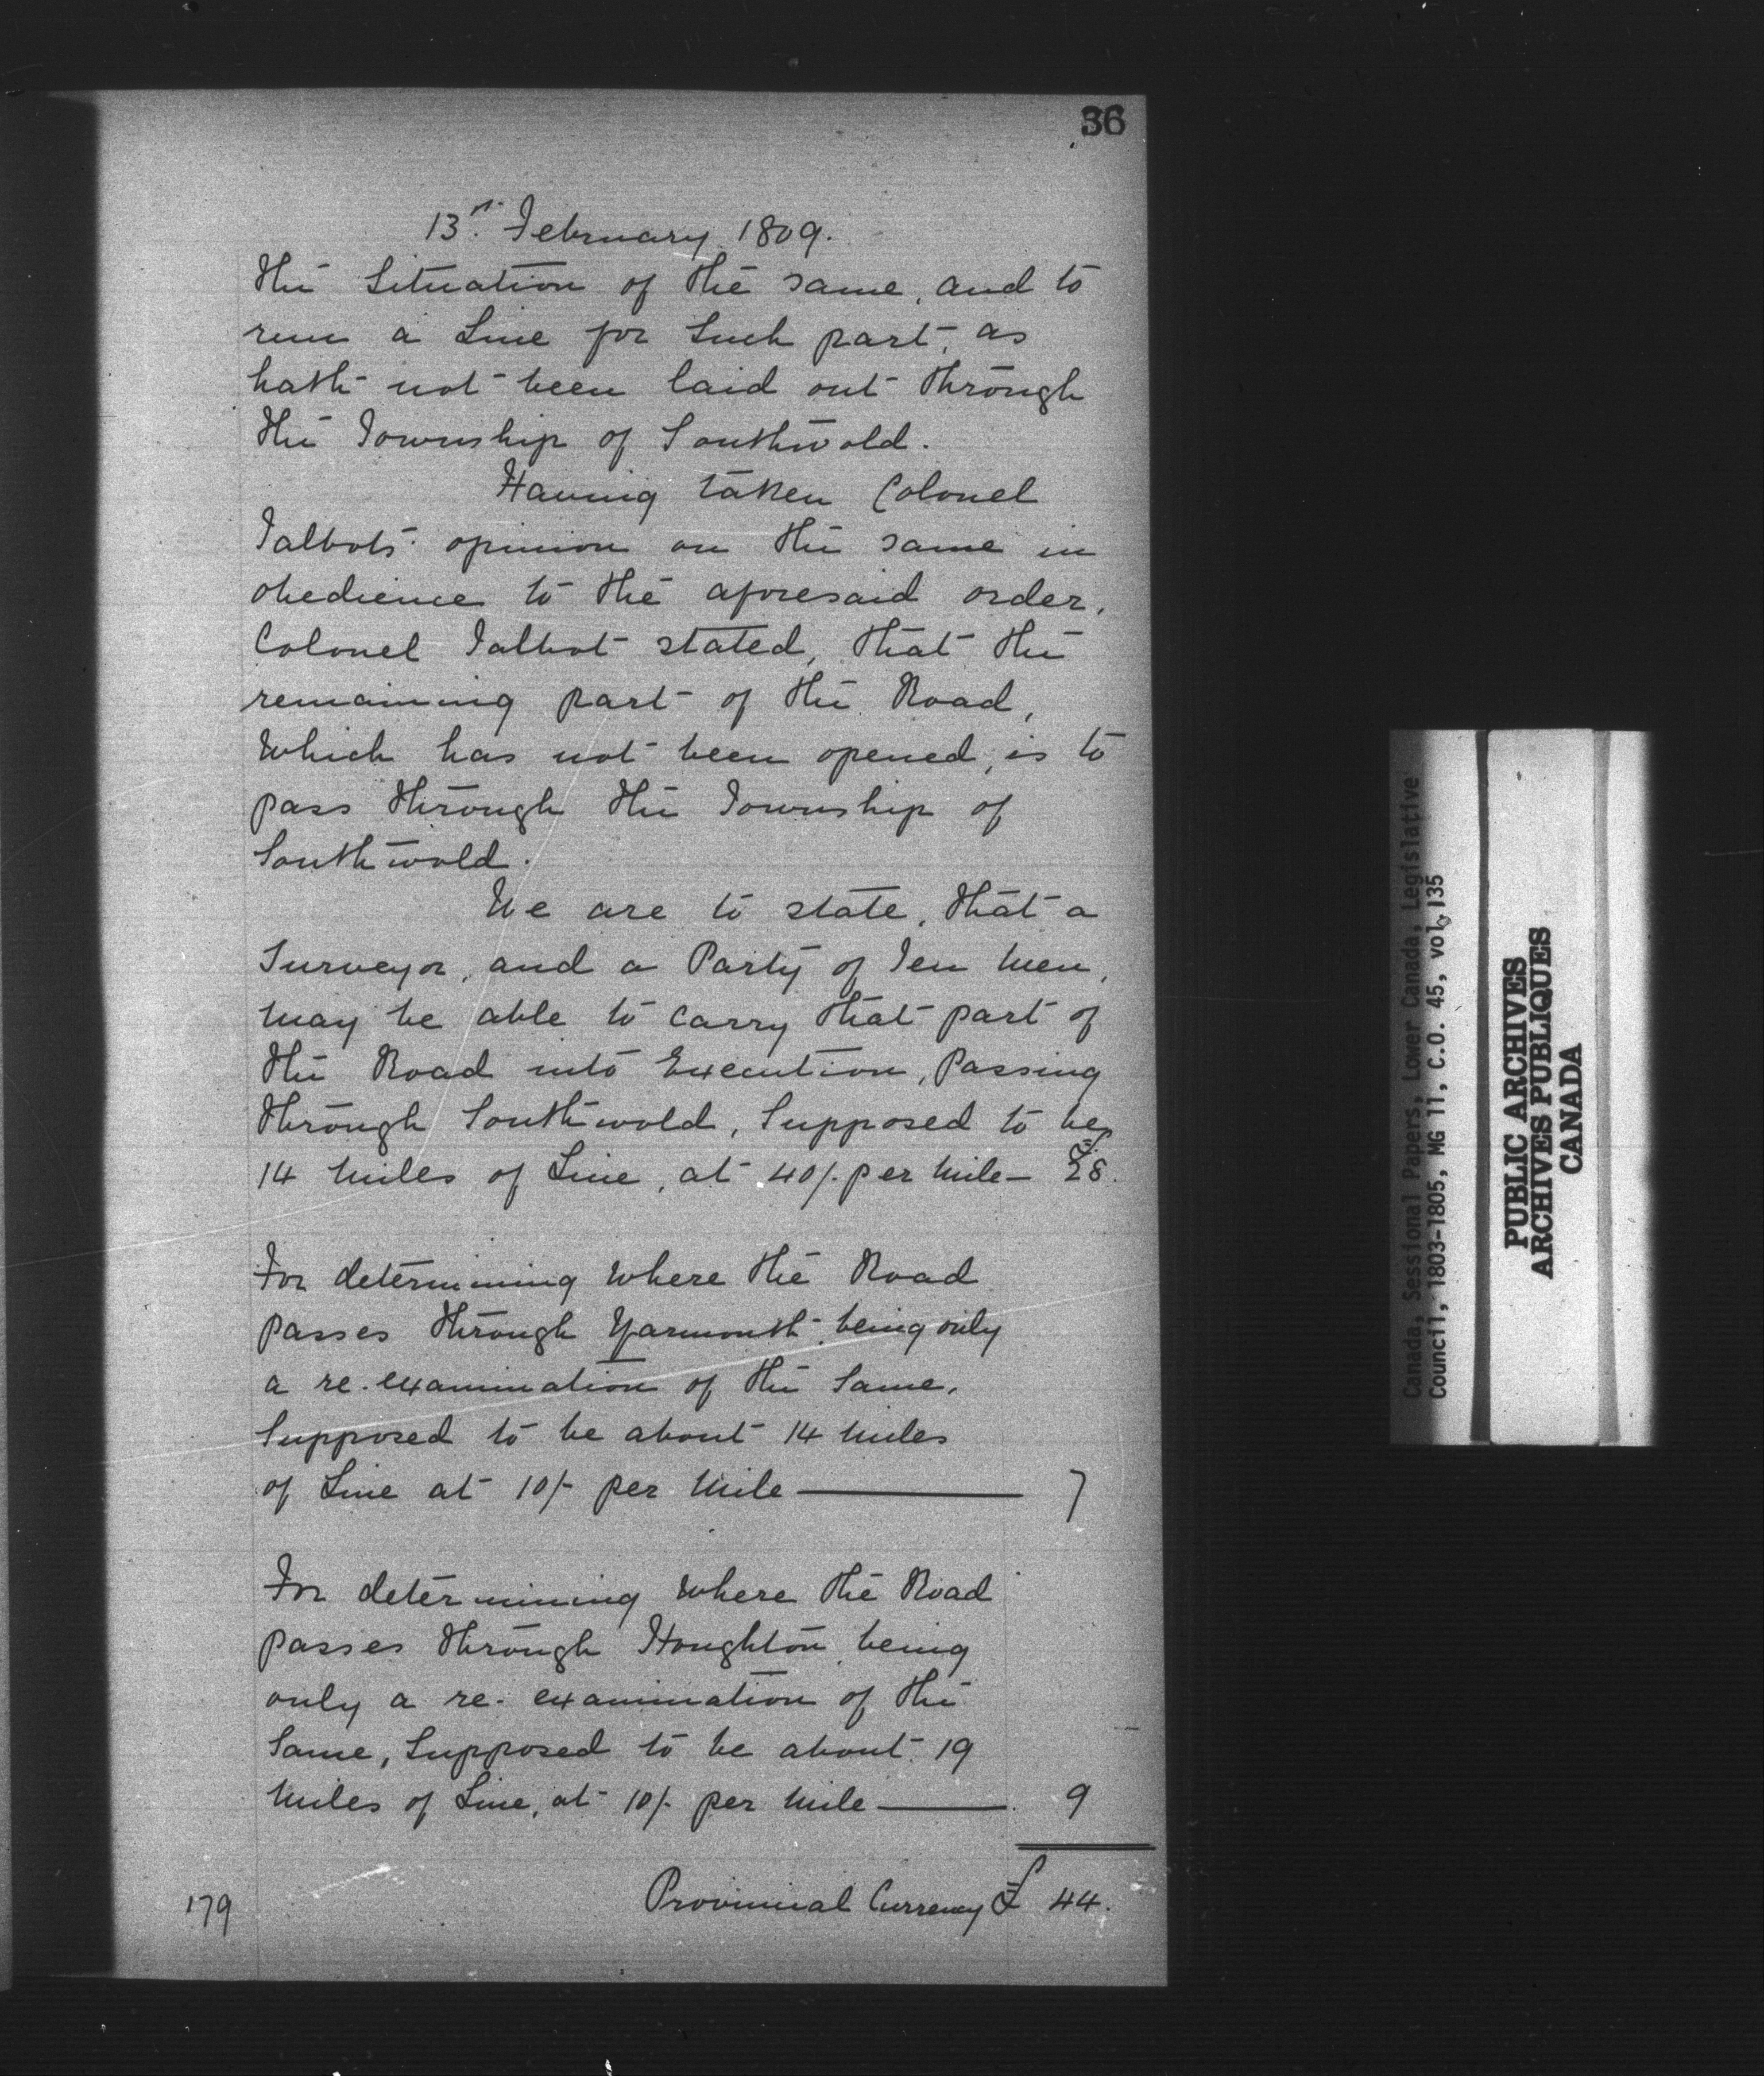 36
13th February 1809.
the Situation of the same, and to
run a Line for Such part, as
hath not been laid out through
the Township of Southwold.
Having taken Colonel
Talbots opinion on the same in
obedience to the aforesaid order,
Colonel Talbot stated, that the
remaining part of the Road,
Which has not been opened, is to
pass through the Township of
Southwold.
We are to state, that a
Surveyor, and a Party of Ten Men,
May be able to carry that part of
the Road into Execution, Passing
through Southwold, Supposed to be
14 Miles of Line, at 40/. per Mile— £28.
For determining Where the Road
Passes through Yarmouth, being only
a re-examination of the Same,
Supposed to be about 14 Miles
of Line at 10/- per Mile — 7
For determining Where the Road
passes through Houghton, being
only a re-examination of the
Same, Supposed to be about 19
Miles of Line, at 10/- per Mile — 9
Provincial Currency £ 44.
179
Canada, Sessional Papers, Lower Canada, Legislative
Council, 1803-1805, MG 11, C.O. 45, vol. 135
PUBLIC ARCHIVES
ARCHIVES PUBLIQUES
CANADA